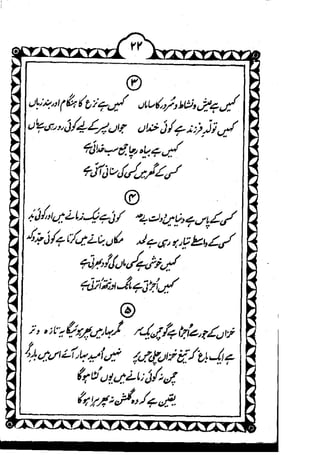 ۲۲
۳
کہیں ہے عیش و نشاط و سرور کا ساماں کہیں ہے نزع کا ہنگام اور بند زباں
کہیں تولد فرزند ہے کوئی خنداں جواں پسر کے لیے کوئی رو رہی ہے ماں
کہیں ہے بیاہ رچا جمع سب خدائی ہے
کسی کے گھر میں کسی کی سنانی آئی ہے
۴
کسی کے پاس ہے دنیا میں دولت بے کوئی ہے نیک زمانے میں اور کوئی بد
کسی کے واسطے تیار ہو رہی ہے لحد مکاں بنانے میں کرتا ہے کوئی جد و کد
کہیں خوشی ہے کسی ماں کی گود بھرتی ہے
کہیں اجڑتی ہے
۵
خزاں کے جور سے اجڑا ہے گو چمن یکسر مگر بہار میں پھر ہوئیگا یہ تازہ و تر
ہے ایک باغ کہ تیغ خزاں چلی جس پر نہیں امید بہار آئے اس میں بار دگر
چمن نہ کوئی زمانے میں یوں لٹا ہوگا
یقین ہے کہ وہ گلشن نہ پھر ہرا ہوگا